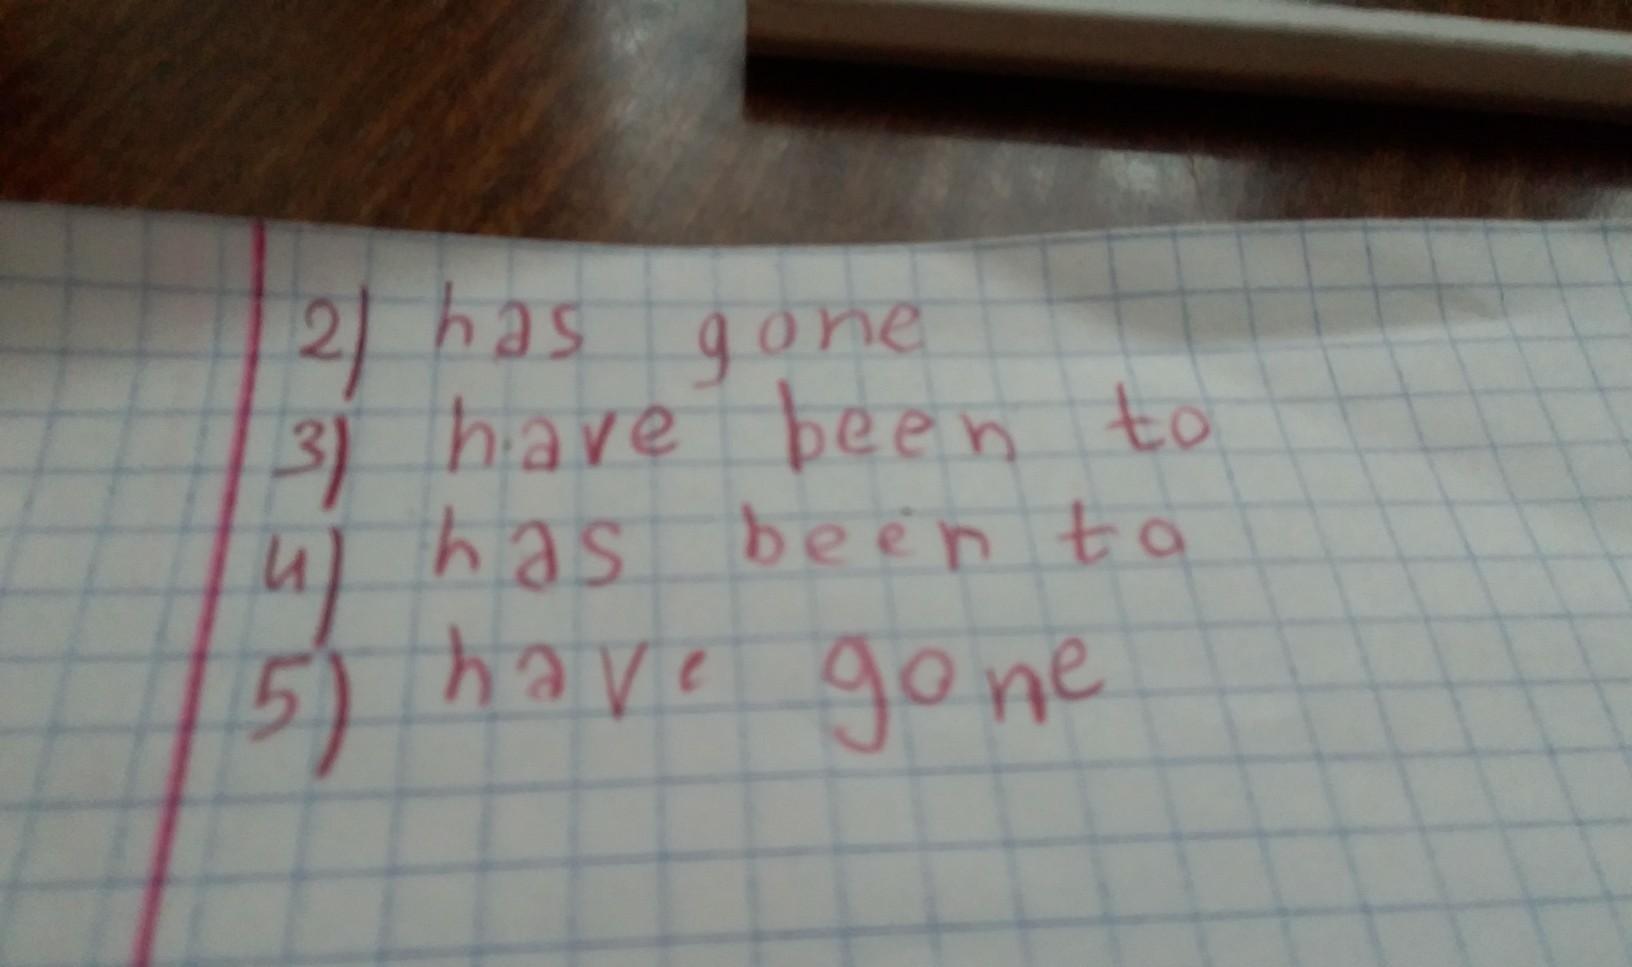 2) has gone
3) have been to
4) has been to
5) have gone